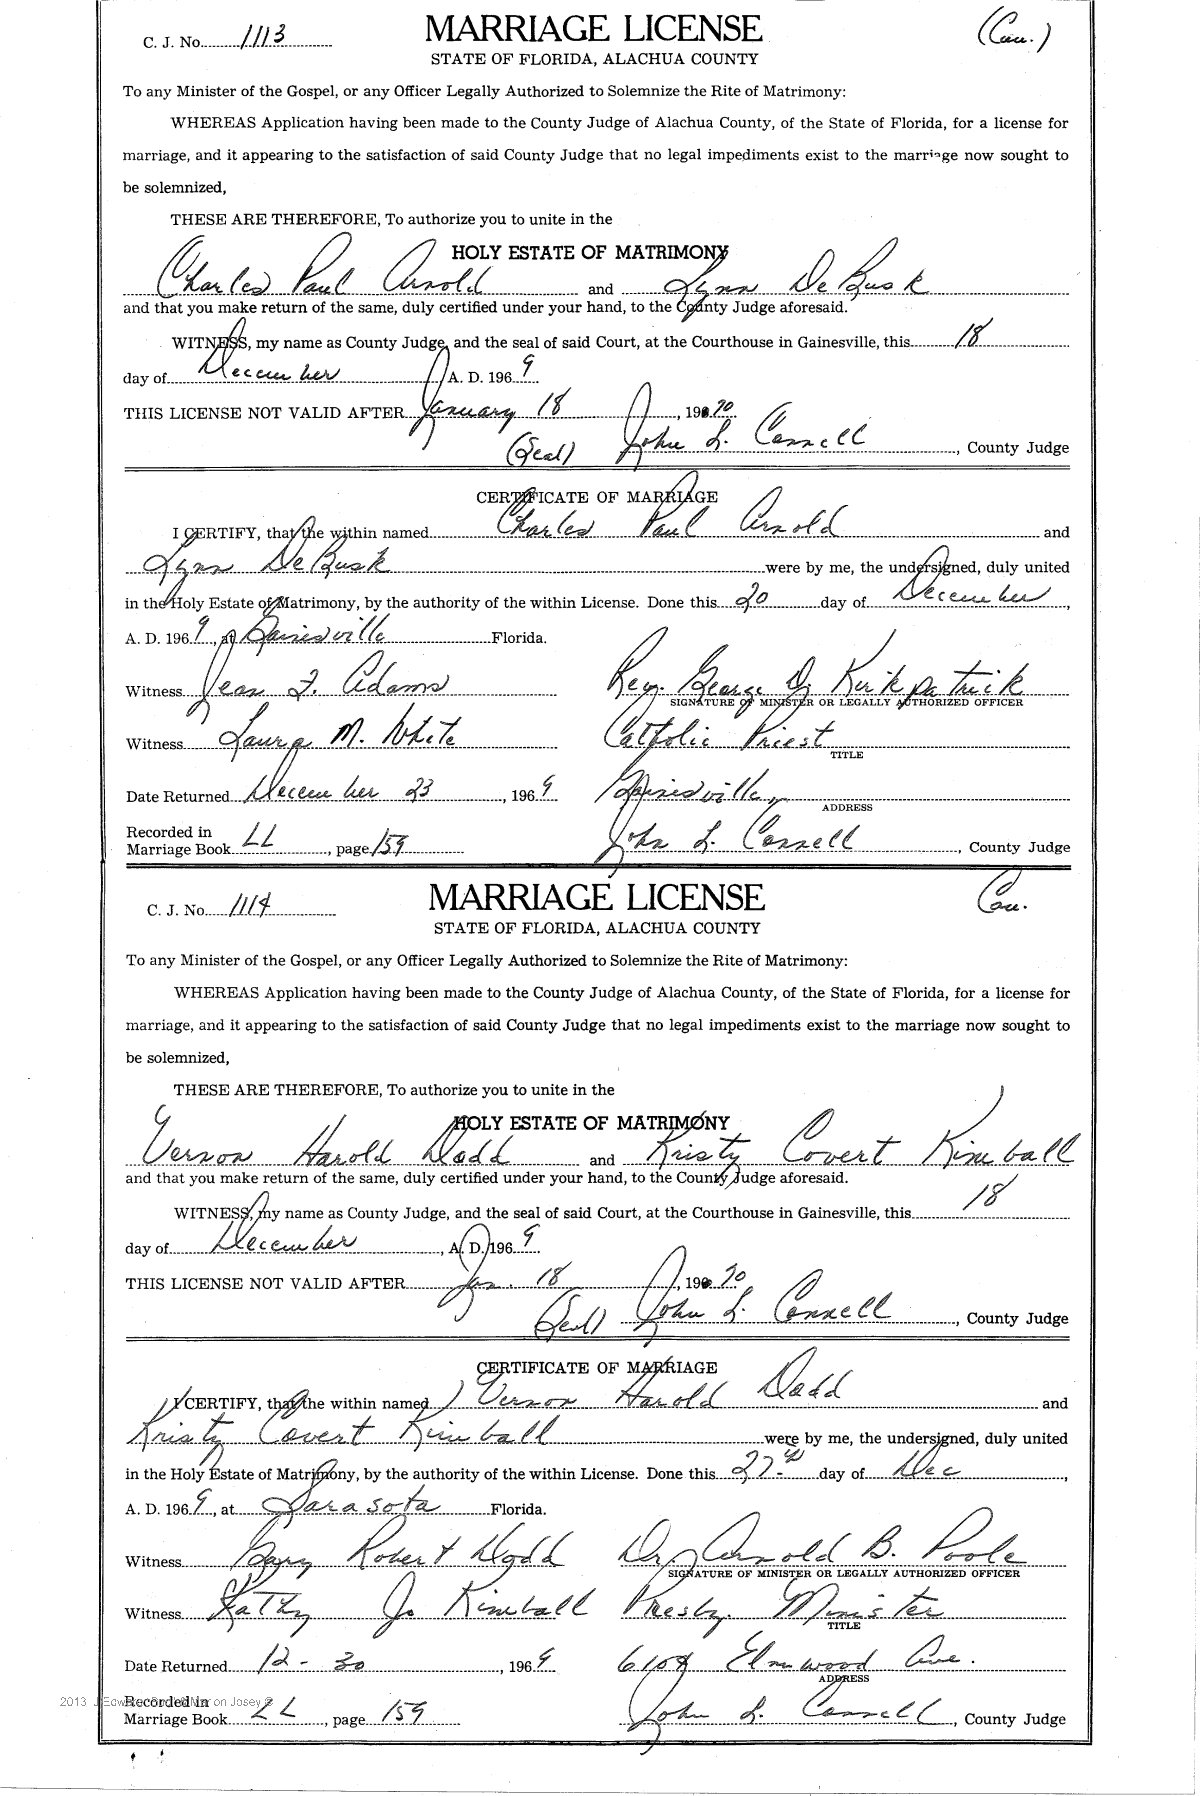 C. J. No. 1113 MARRIAGE LICENSE (Cau.)
STATE OF FLORIDA, ALACHUA COUNTY
To any Minister of the Gospel, or any Officer Legally Authorized to Solemnize the Rite of Matrimony:
WHEREAS Application having been made to the County Judge of Alachua County, of the State of Florida, for a license for
marriage, and it appearing to the satisfaction of said County Judge that no legal impediments exist to the marriage now sought to
be solemnized,
THESE ARE THEREFORE, To authorize you to unite in the
HOLY ESTATE OF MATRIMONY
Charles Paul Arnold and Lynn DeBusk
and that you make return of the same, duly certified under your hand, to the County Judge aforesaid.
WITNESS, my name as County Judge, and the seal of said Court, at the Courthouse in Gainesville, this 18
day of December A. D. 1969
THIS LICENSE NOT VALID AFTER January 18, 1970
(Seal) John L. Connell, County Judge
CERTIFICATE OF MARRIAGE
I CERTIFY, that the within named Charles Paul Arnold and
Lynn DeBusk were by me, the undersigned, duly united
in the Holy Estate of Matrimony, by the authority of the within License. Done this 20 day of December,
A. D. 1969, at Gainesville Florida.
Witness Jean F. Adams Rev. George D. Kirkpatrick
SIGNATURE OF MINISTER OR LEGALLY AUTHORIZED OFFICER
Witness Laura M. White Catholic Priest
TITLE
Date Returned December 23, 1969 Gainesville,
ADDRESS
Recorded in
Marriage Book LL, page 159 John L. Connell, County Judge
C. J. No. 1114 MARRIAGE LICENSE Cau.
STATE OF FLORIDA, ALACHUA COUNTY
To any Minister of the Gospel, or any Officer Legally Authorized to Solemnize the Rite of Matrimony:
WHEREAS Application having been made to the County Judge of Alachua County, of the State of Florida, for a license for
marriage, and it appearing to the satisfaction of said County Judge that no legal impediments exist to the marriage now sought to
be solemnized,
THESE ARE THEREFORE, To authorize you to unite in the
HOLY ESTATE OF MATRIMONY
Vernon Harold Dodd and Kristy Covert Kimball
and that you make return of the same, duly certified under your hand, to the County Judge aforesaid.
WITNESS, my name as County Judge, and the seal of said Court, at the Courthouse in Gainesville, this 18
day of December, A. D. 1969
THIS LICENSE NOT VALID AFTER Jan. 18, 1970
(Seal) John L. Connell, County Judge
CERTIFICATE OF MARRIAGE
I CERTIFY, that the within named Vernon Harold Dodd and
Kristy Covert Kimball were by me, the undersigned, duly united
in the Holy Estate of Matrimony, by the authority of the within License. Done this 27th day of Dec,
A. D. 1969, at Sarasota Florida.
Witness Gary Robert Dodd Dr. Arnold B. Poole
SIGNATURE OF MINISTER OR LEGALLY AUTHORIZED OFFICER
Witness Kathy Jo Kimball Presby. Minister
TITLE
Date Returned 12-30, 1969 6108 Elmwood Ave.
ADDRESS
2013 Recorded in on Josey
Marriage Book LL, page 159 John L. Connell, County Judge